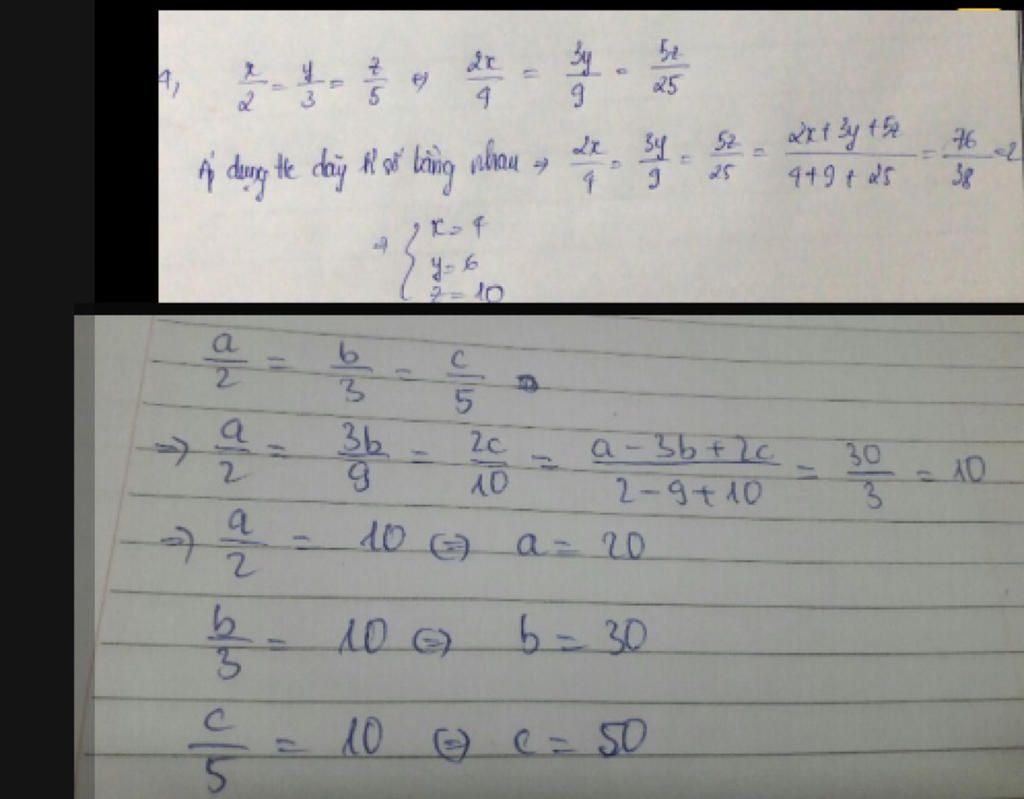 4, x/2 = y/3 = z/5 ⇔ 2x/4 = 3y/9 = 5z/25
Áp dụng tc dãy tỉ số bằng nhau ⇒ 2x/4 = 3y/9 = 5z/25 = (2x+3y+5z)/(4+9+25) = 76/38 = 2
⇒ { x = 4
y = 6
z = 10
a/2 = b/3 = c/5
⇒ a/2 = 3b/9 = 2c/10 = (a-3b+2c)/(2-9+10) = 30/3 = 10
⇒ a/2 = 10 ⇔ a = 20
b/3 = 10 ⇔ b = 30
c/5 = 10 ⇔ c = 50